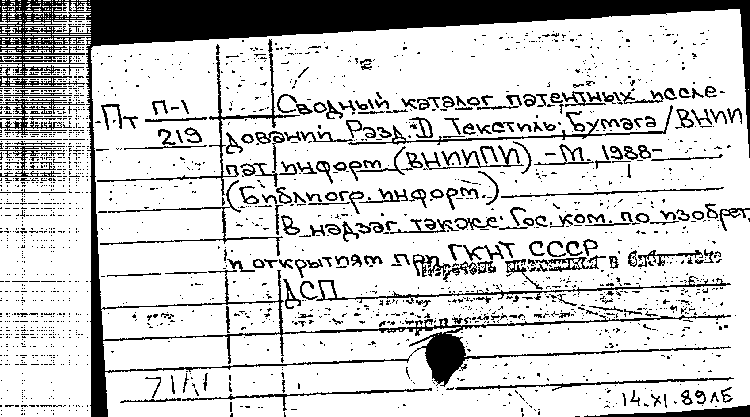 Пт П-1 Сводный каталог патентных иссле-
219 дований Разд. D, Текстиль; Бумага / ВНИИ
пат. информ. (ВНИИПИ) - М., 1988-
(Библиогр. информ.)
В надзаг. также: Гос. ком. по изобрет.
и открытиям при ГКНТ СССР
Перечень имеющихся в библиотеке
ДСП
14.XI.89